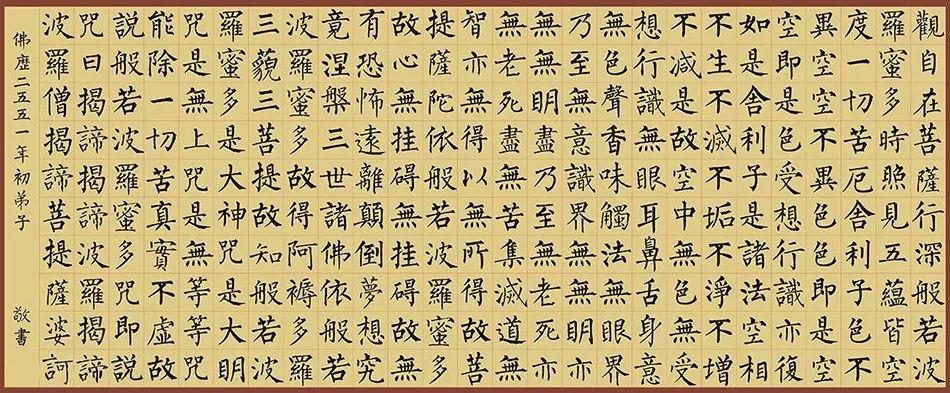 觀自在菩薩行深般若波
羅蜜多時照見五蘊皆空
度一切苦厄舍利子色不
異空空不異色色即是空
空即是色受想行識亦復
如是舍利子是諸法空相
不生不滅不垢不淨不增
不減是故空中無色無受
想行識無眼耳鼻舌身意
無色聲香味觸法無眼界
乃至無意識界無無明亦
無無明盡乃至無老死亦
無老死盡無苦集滅道無
智亦無得以無所得故菩
提薩陀依般若波羅蜜多
故心無挂碍無挂碍故無
有恐怖遠離顛倒夢想究
竟涅槃三世諸佛依般若
波羅蜜多故得阿褥多羅
三藐三菩提故知般若波
羅蜜多是大神咒是大明
咒是無上咒是無等等咒
能除一切苦真實不虛故
說般若波羅蜜多咒即說
咒曰揭諦揭諦波羅揭諦
波羅僧揭諦菩提薩婆訶
佛歷二五五一年初弟子 敬書